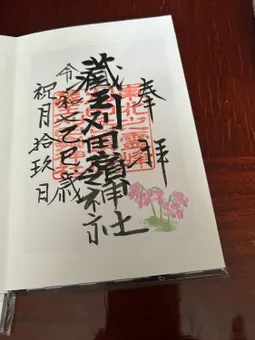 奉拝
蔵王刈田嶺神社
令和七乙巳歳
祝月拾玖日